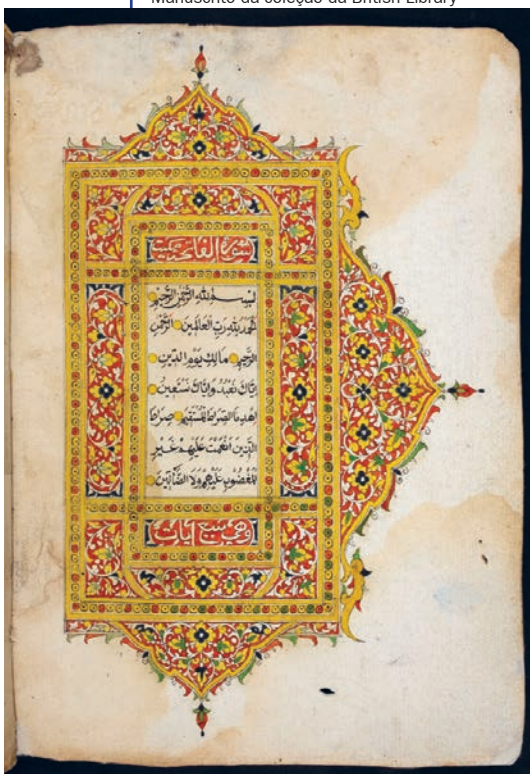 Manuscrito da coleção da British Library
سورة الفاتحة
بسم الله الرحمن الرحيم
الحمد لله رب العالمين الرحمن
الرحيم مالك يوم الدين
اياك نعبد واياك نستعين
اهدنا الصراط المستقيم صراط
الذين انعمت عليهم غير
المغضوب عليهم ولا الضالين
وهي سبع ايات